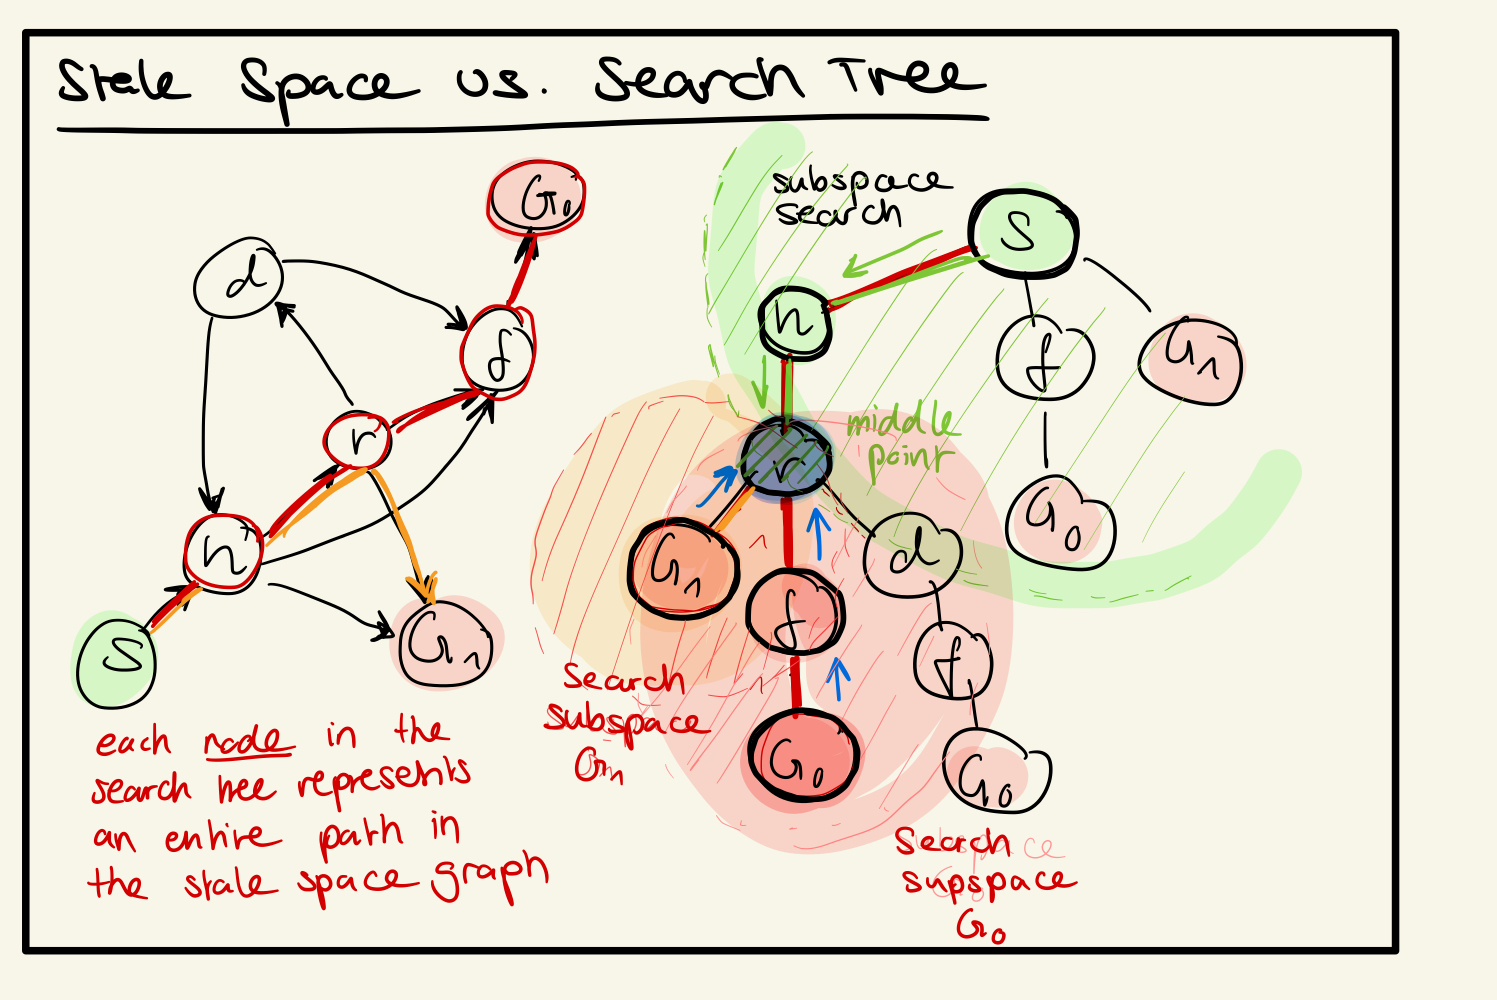 State Space vs. Search Tree
G₀
d
f
r
h
S
G₁
each node in the
search tree represents
an entire path in
the state space graph
subspace
search
S
h
f
G₁
middle
point
r
G₀
G₁
d
f
f
G₀
G₀
Search
subspace
Search
supspace
G₀